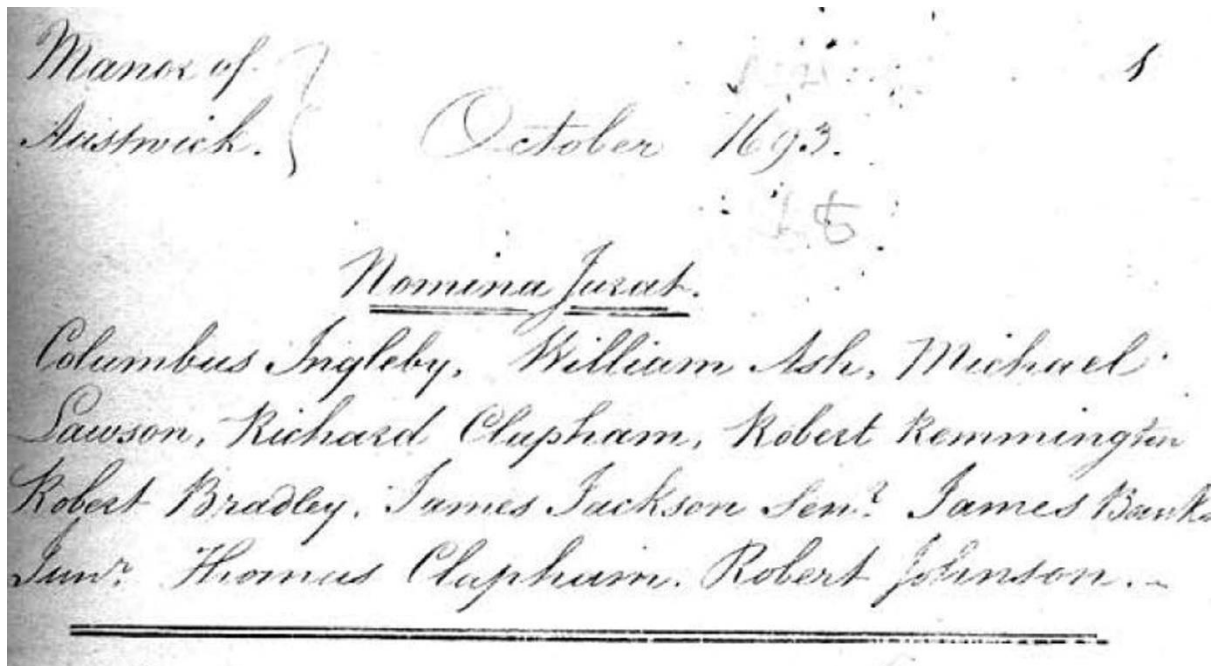 Manor of 1
Austwick. October 1693.
Nomina Jurat.
Columbus Ingleby, William Ash, Michael
Lawson, Richard Clapham, Robert Remmington
Robert Bradley, James Jackson Senr. James Banks
Junr. Thomas Clapham, Robert Johnson.